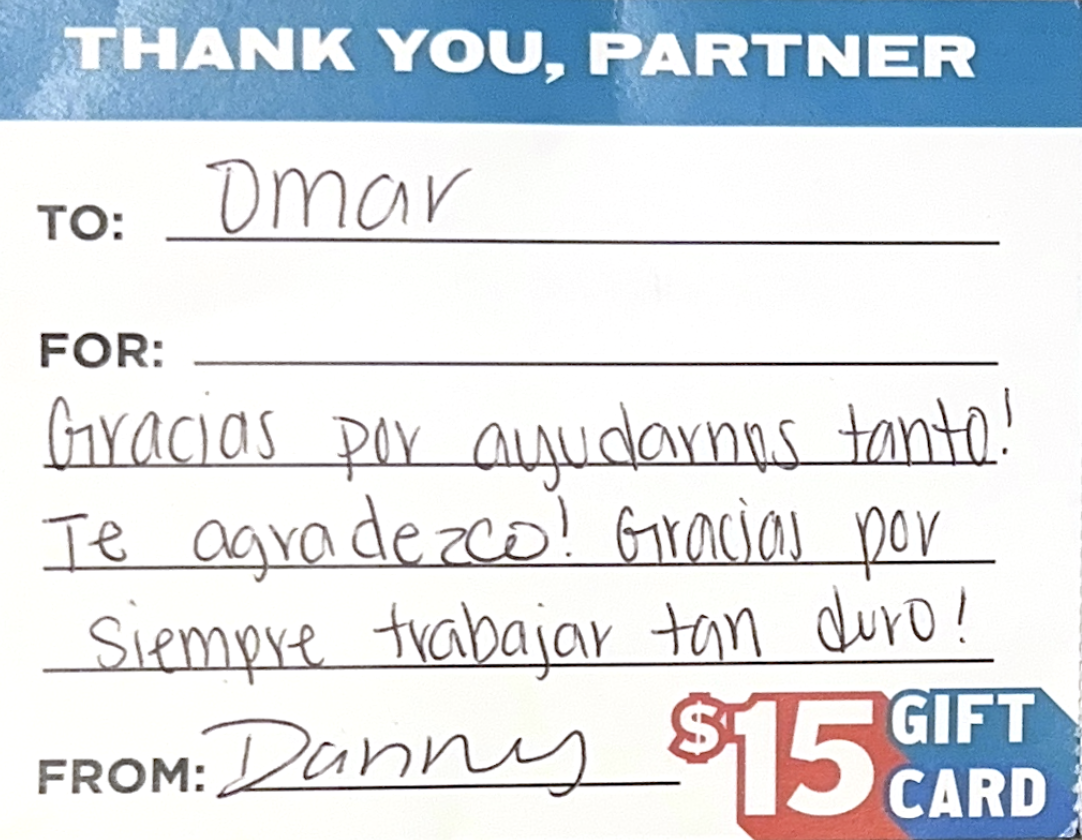 THANK YOU, PARTNER
TO: Omar
FOR:
Gracias por ayudarnos tanto!
Te agradezco! Gracias por
siempre trabajar tan duro!
FROM: Danny
$15 GIFT CARD